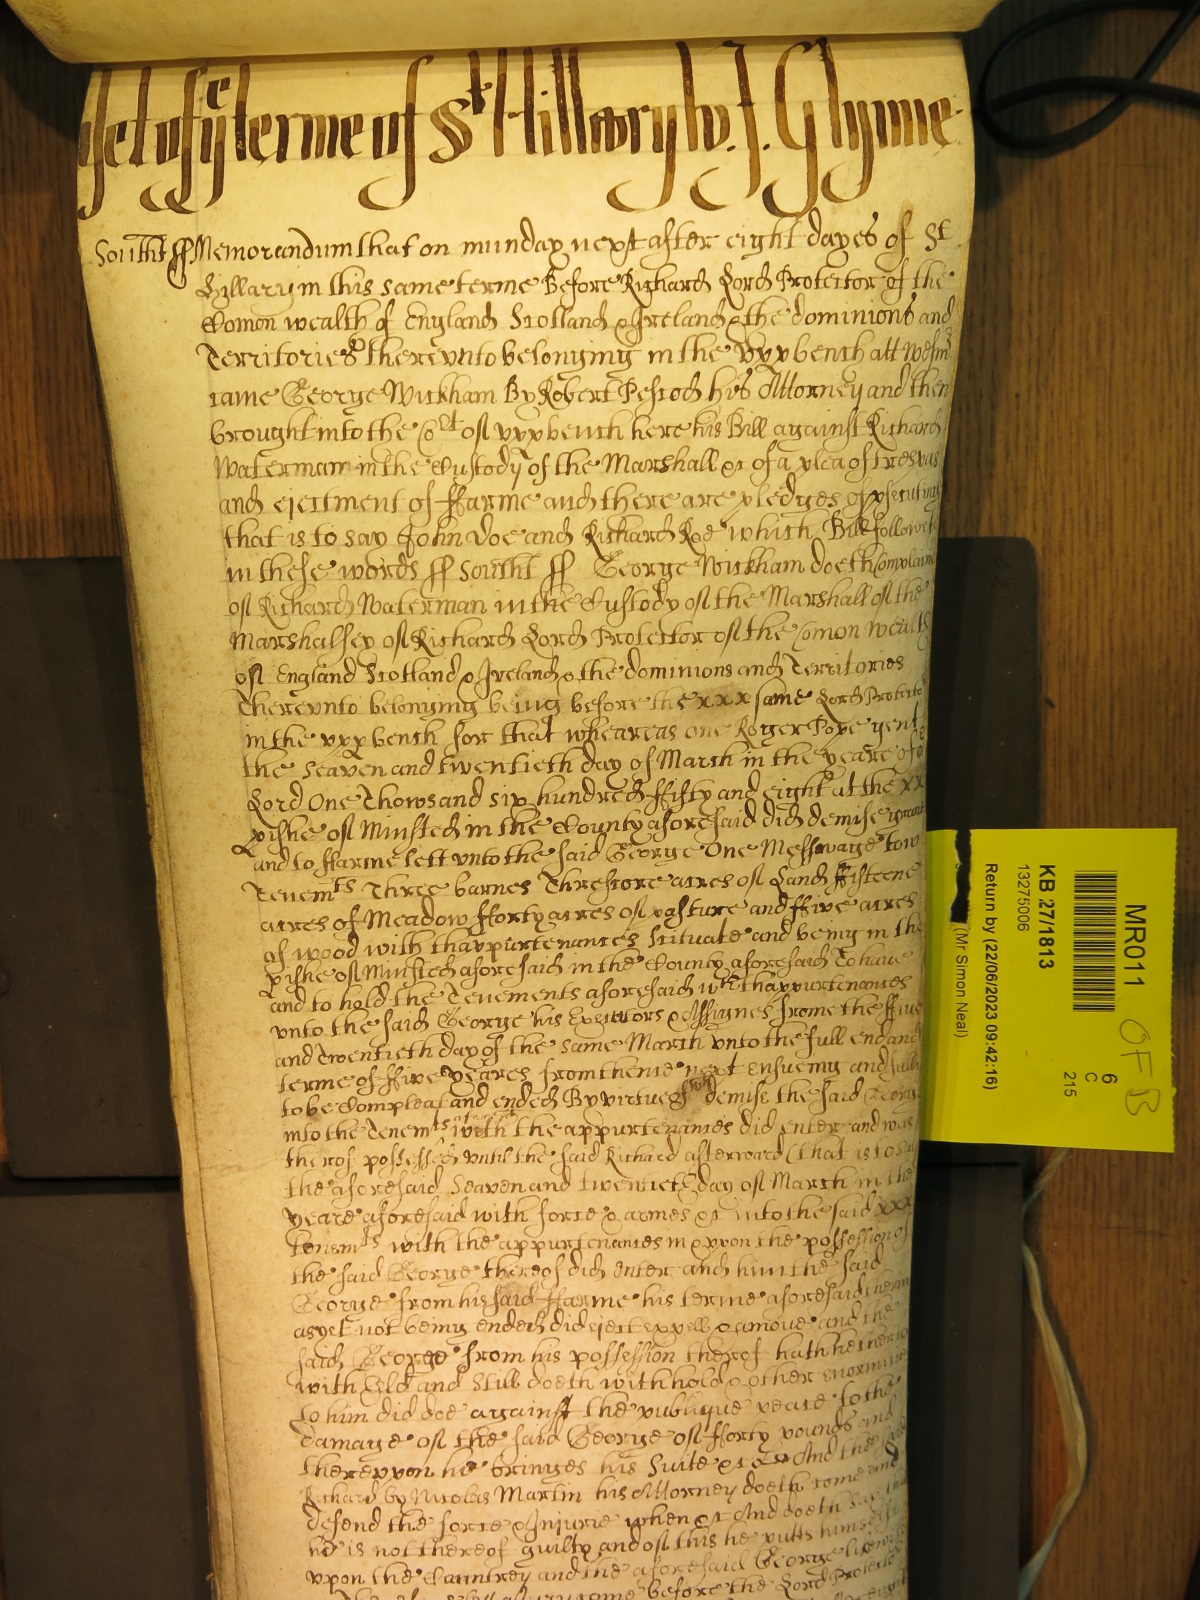 yet of yᵉ terme of Sᵗ Hillary w. J. Glynne
Southt ss Memorandum that on munday next after eight dayes of St
Hillary in this same terme Before Richard Lord Protector of the
Comon wealth of England Scotland & Ireland & the dominions and
Territories thereunto belonging in the upp bench att Westm
came George Wickham By Robert Pescod his Attorney and then
brought into the Co^rt of upp bench here his Bill against Richard
Waterman in the Custody of the Marshall &c of a plea of trespas
and ejectment of ffarme and there are pledges of psecuting
that is to say John Doe and Richard Roe which Bill followeth
in these words ss Southt ss George Wickham doeth Complaine
of Richard Waterman in the Custody of the Marshall of the
Marshalsey of Richard Lord Protector of the Comon wealth
of England Scotland & Ireland & the dominions and Territories
Thereunto belonging being before the xxx same Lord Protector
in the upp bench for that wheareas one Roger Pope gent
the Seaven and twentieth day of March in the yeare of o
Lord One Thowsand six hundred ffifty and eight at the xx
pishe of Minsted in the County aforesaid did demise graunt
and to ffarme lett unto the said George One Messuage Tow
Tenemts Three barnes Threscore acres of Land ffifteene
acres of Meadow fforty acres of pasture and ffive acres
of wood with thappurtenances Scituate and being in the
pishe of Minsted aforesaid in the County aforesaid To have
and to hold the Tenements aforesaid wth thappurtenances
unto the said George his Executors & Assignes frome the ffive
and Twentieth day of the same March unto the full end and
terme of ffive yeares from thence next ensueing and fully
to be Compleat and ended By virtue of wch demise the said George
into the Tenemts aforesaid with the appurtenances did enter and was
therof possessed untill the said Richard afterward (that is to say
the aforesaid Seaven and twentieth day of March in the
yeare aforesaid with force & armes &c into the said xxx
tenemts with the appurtenances in & upon the possession of
the said George thereof did enter and him the said
George from his said ffarme his terme aforesaid therein
as yet not being ended did eject expell & amove and the
said George from his possession therof hath hitherto
with held and still doeth withhold & other enormities
to him did doe against the publique peace to the
damage of the said George of fforty pounds and
thereupon he bringes his Suite &c And the said
Richard by Nicolas Martin his Attorney doeth come and
defend the force & Injurie when &c And doeth say that
he is not thereof guilty and of this he putts himselfe
upon the Countrey and the aforesaid George likewise
before the Lord Protector
MR011
OFB
6
C
215
KB 27/1813
13275006
Return by (22/06/2023 09:42:16)
(Mr Simon Neal)